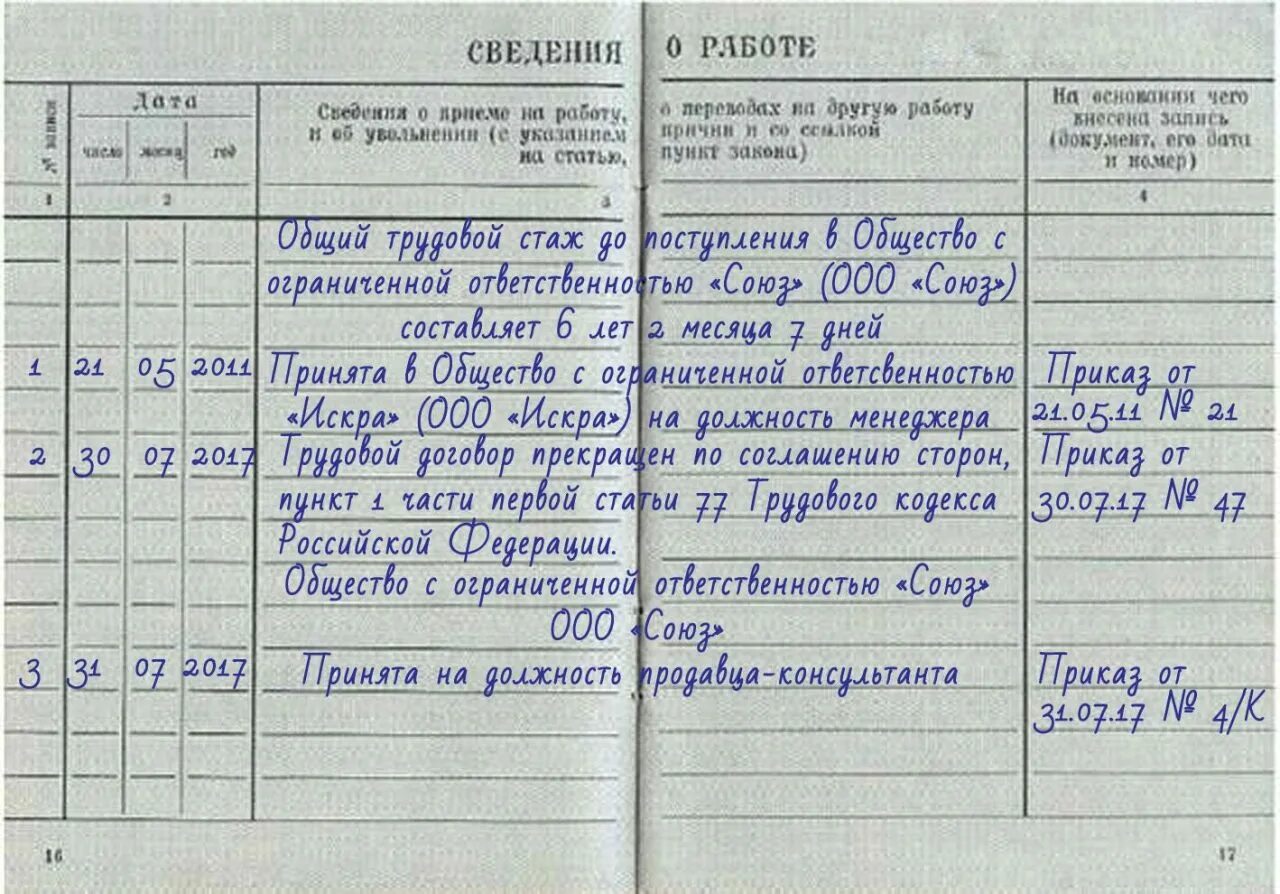 СВЕДЕНИЯ О РАБОТЕ
№ записи
Дата
Сведения о приеме на работу, о переводах на другую работу
и об увольнении (с указанием причин и со ссылкой
на статью, пункт закона)
На основании чего
внесена запись
(документ, его дата
и номер)
число месяц год
1 2 3 4
Общий трудовой стаж до поступления в Общество с
ограниченной ответственностью «Союз» (ООО «Союз»)
составляет 6 лет 2 месяца 7 дней
1 21 05 2011 Принята в Общество с ограниченной ответсвенностью Приказ от
«Искра» (ООО «Искра») на должность менеджера 21.05.11 № 21
2 30 07 2017 Трудовой договор прекращен по соглашению сторон, Приказ от
пункт 1 части первой статьи 77 Трудового кодекса 30.07.17 № 47
Российской Федерации.
Общество с ограниченной ответственностью «Союз»
ООО «Союз»
3 31 07 2017 Принята на должность продавца-консультанта Приказ от
31.07.17 № 4/К
16 17